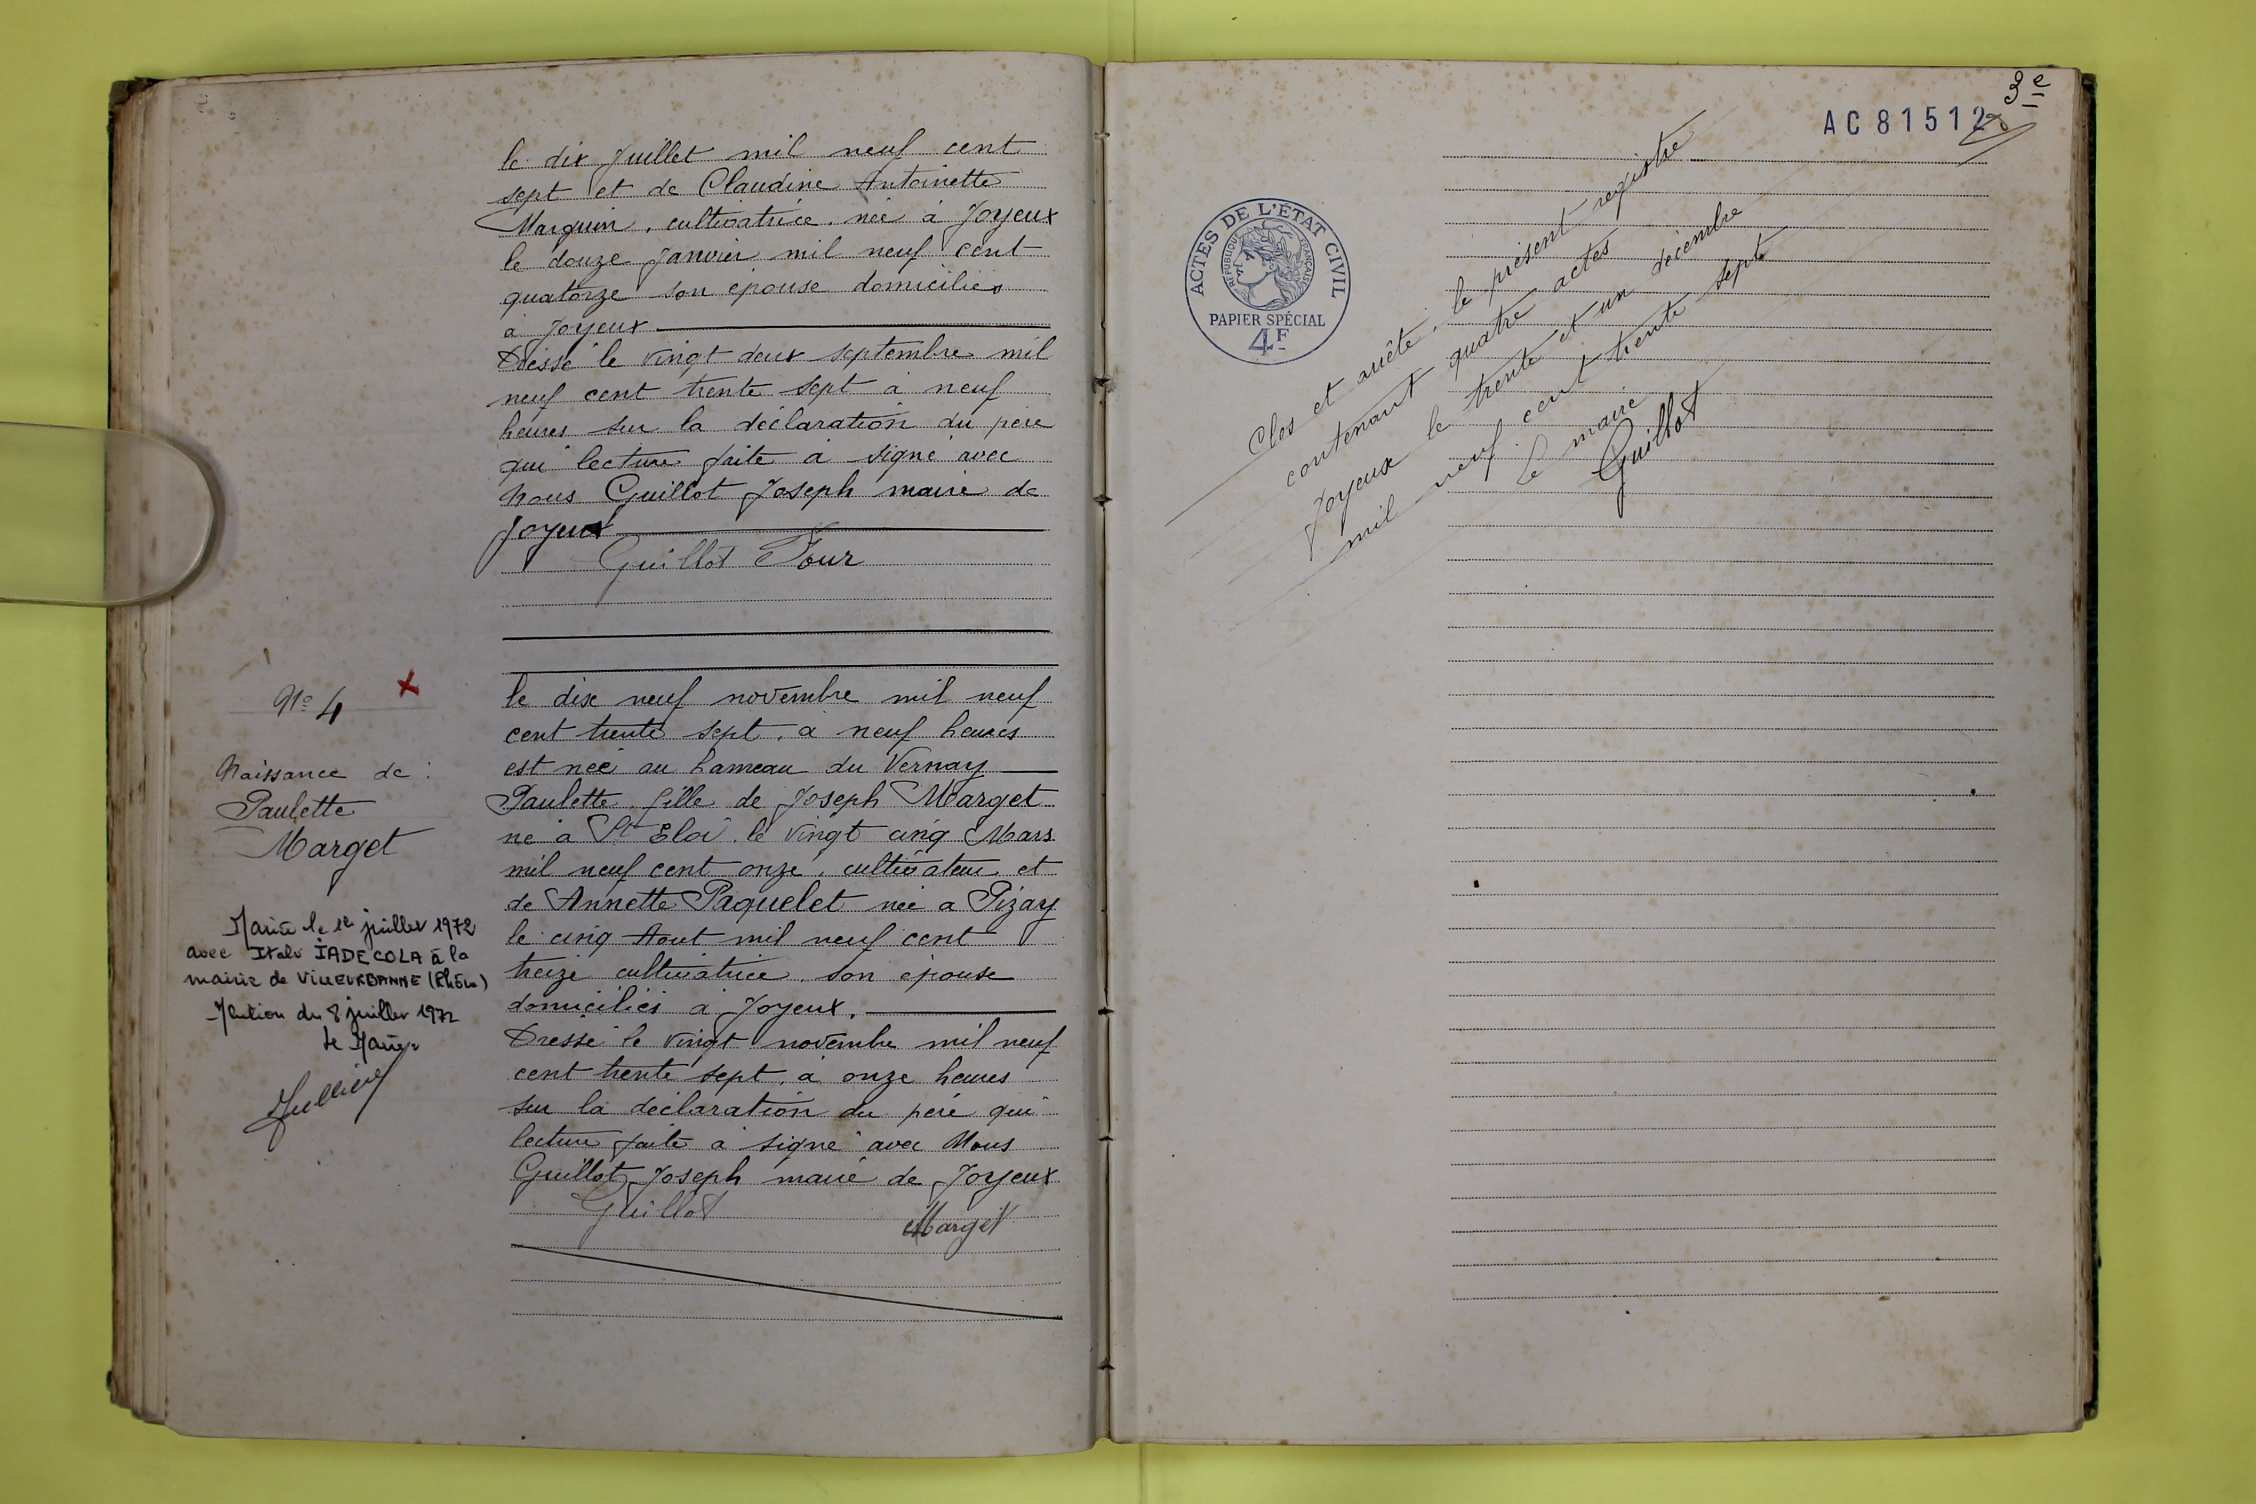 le dix Juillet mil neuf cent
sept et de Claudine Antoinette
Marquin, cultivatrice, née à Joyeux
le douze Janvier mil neuf cent
quatorze son épouse domiciliés
à Joyeux
Dressé le vingt deux septembre mil
neuf cent trente sept à neuf
heures sur la déclaration du père
qui lecture faite a signé avec
Nous Guillot Joseph maire de
Joyeux
Guillot Four
N° 4
Naissance de :
Paulette
Marget
Mariée le 1er juillet 1972
avec Italo IADECOLA à la
mairie de VILLEURBANNE (Rhône)
Mention du 8 juillet 1972
Le Maire
le dix neuf novembre mil neuf
cent trente sept, à neuf heures
est née au hameau du Vernay
Paulette, fille de Joseph Marget
né à St Eloi, le vingt cinq Mars
mil neuf cent onze, cultivateur et
de Annette Paquelet née a Pizay
le cinq Aout mil neuf cent
treize cultivatrice, son épouse
domiciliés à Joyeux.
Dressé le vingt novembre mil neuf
cent trente sept, à onze heures
sur la déclaration du père qui
lecture faite a signé avec Nous
Guillot Joseph maire de Joyeux
Guillot Marget
3e
AC 81512
ACTES DE L'ÉTAT CIVIL
RÉPUBLIQUE FRANÇAISE
PAPIER SPÉCIAL
4F
Clos et arrêté, le présent registre
contenant quatre actes
Joyeux le trente et un décembre
mil neuf cent trente sept
Le maire
Guillot